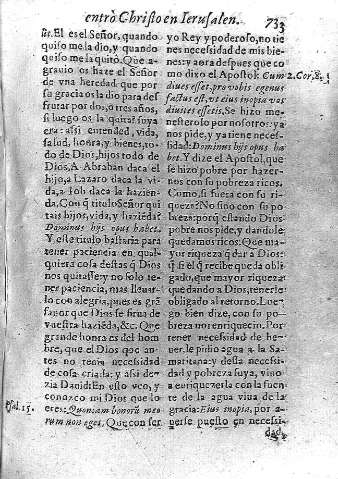 entrò Christo en Ierusalen. 733
set. El es el Señor, quando
quiso me la dio, y quando
quiso me la quitò. Que a-
grauio os haze el Señor
de vna heredad que por
su gracia os la dio para des
frutar por dos, o tres años,
si luego os la quita? suya
era: assi entended, vida,
salud, honra, y bienes, to-
do de Dios, hijos todo de
Dios. A Abrahan daca el
hijo, a Lazaro daca la vi-
da, a Iob daca la hazien-
da. Con q̃ titulo Señor qui
tais hijos, vida, y haziẽda?
Dominus hijs opus habet.
Y este titulo bastaria para
tener paciencia en qual-
quiera cosa destas q̃ Dios
nos quitasse: y no solo te-
ner paciencia, mas lleuar-
lo con alegria, pues es grã
fauor que Dios se sirua de
vuestra haziẽda, &c. Que
grande honra es del hom
bre, que el Dios que an-
tes no tenia necessidad
de cosa criada: y assi de-
zia Dauid: En esto veo, y
conozco mi Dios que lo
Psal. 15. eres: Quoniam bonorũ meo
rum non eges. Que con ser
yo Rey y poderoso, no tie
nes necessidad de mis bie-
nes: y aora despues que co
mo dixo el Apostol: Cum 2. Cor. 8.
diues esset, pro vobis egenus
factus est, vt eius inopia vos
diuites essetis. Se hizo me-
nesteroso por nosotros: ya
nos pide, y ya tiene neces-
sidad: Dominus hijs opus ha
bet. Y dize el Apostol, que
se hizo pobre por hazer-
nos con su pobreza ricos,
Como, si fuera con su ri-
queza? No sino con su po
breza: porq̃ estando Dios
pobre nos pide, y dandole
quedamos ricos: Que ma-
yor riqueza q̃ dar a Dios:
q̃ si el q̃ recibe queda obli
gado, que mayor riqueza:
que dando a Dios, tenerle
obligado al retorno. Lue-
go bien dize, con su po-
breza nos enriquecio. Por
tener necessidad de be-
uer, le pidio agua a la Sa-
maritana: y desta necessi-
dad y pobreza suya, vino
a enriquezerla con la fuen
te de la agua viua de la
gracia: Eius inopia, por a-
uerse puesto en necessi-
dad,